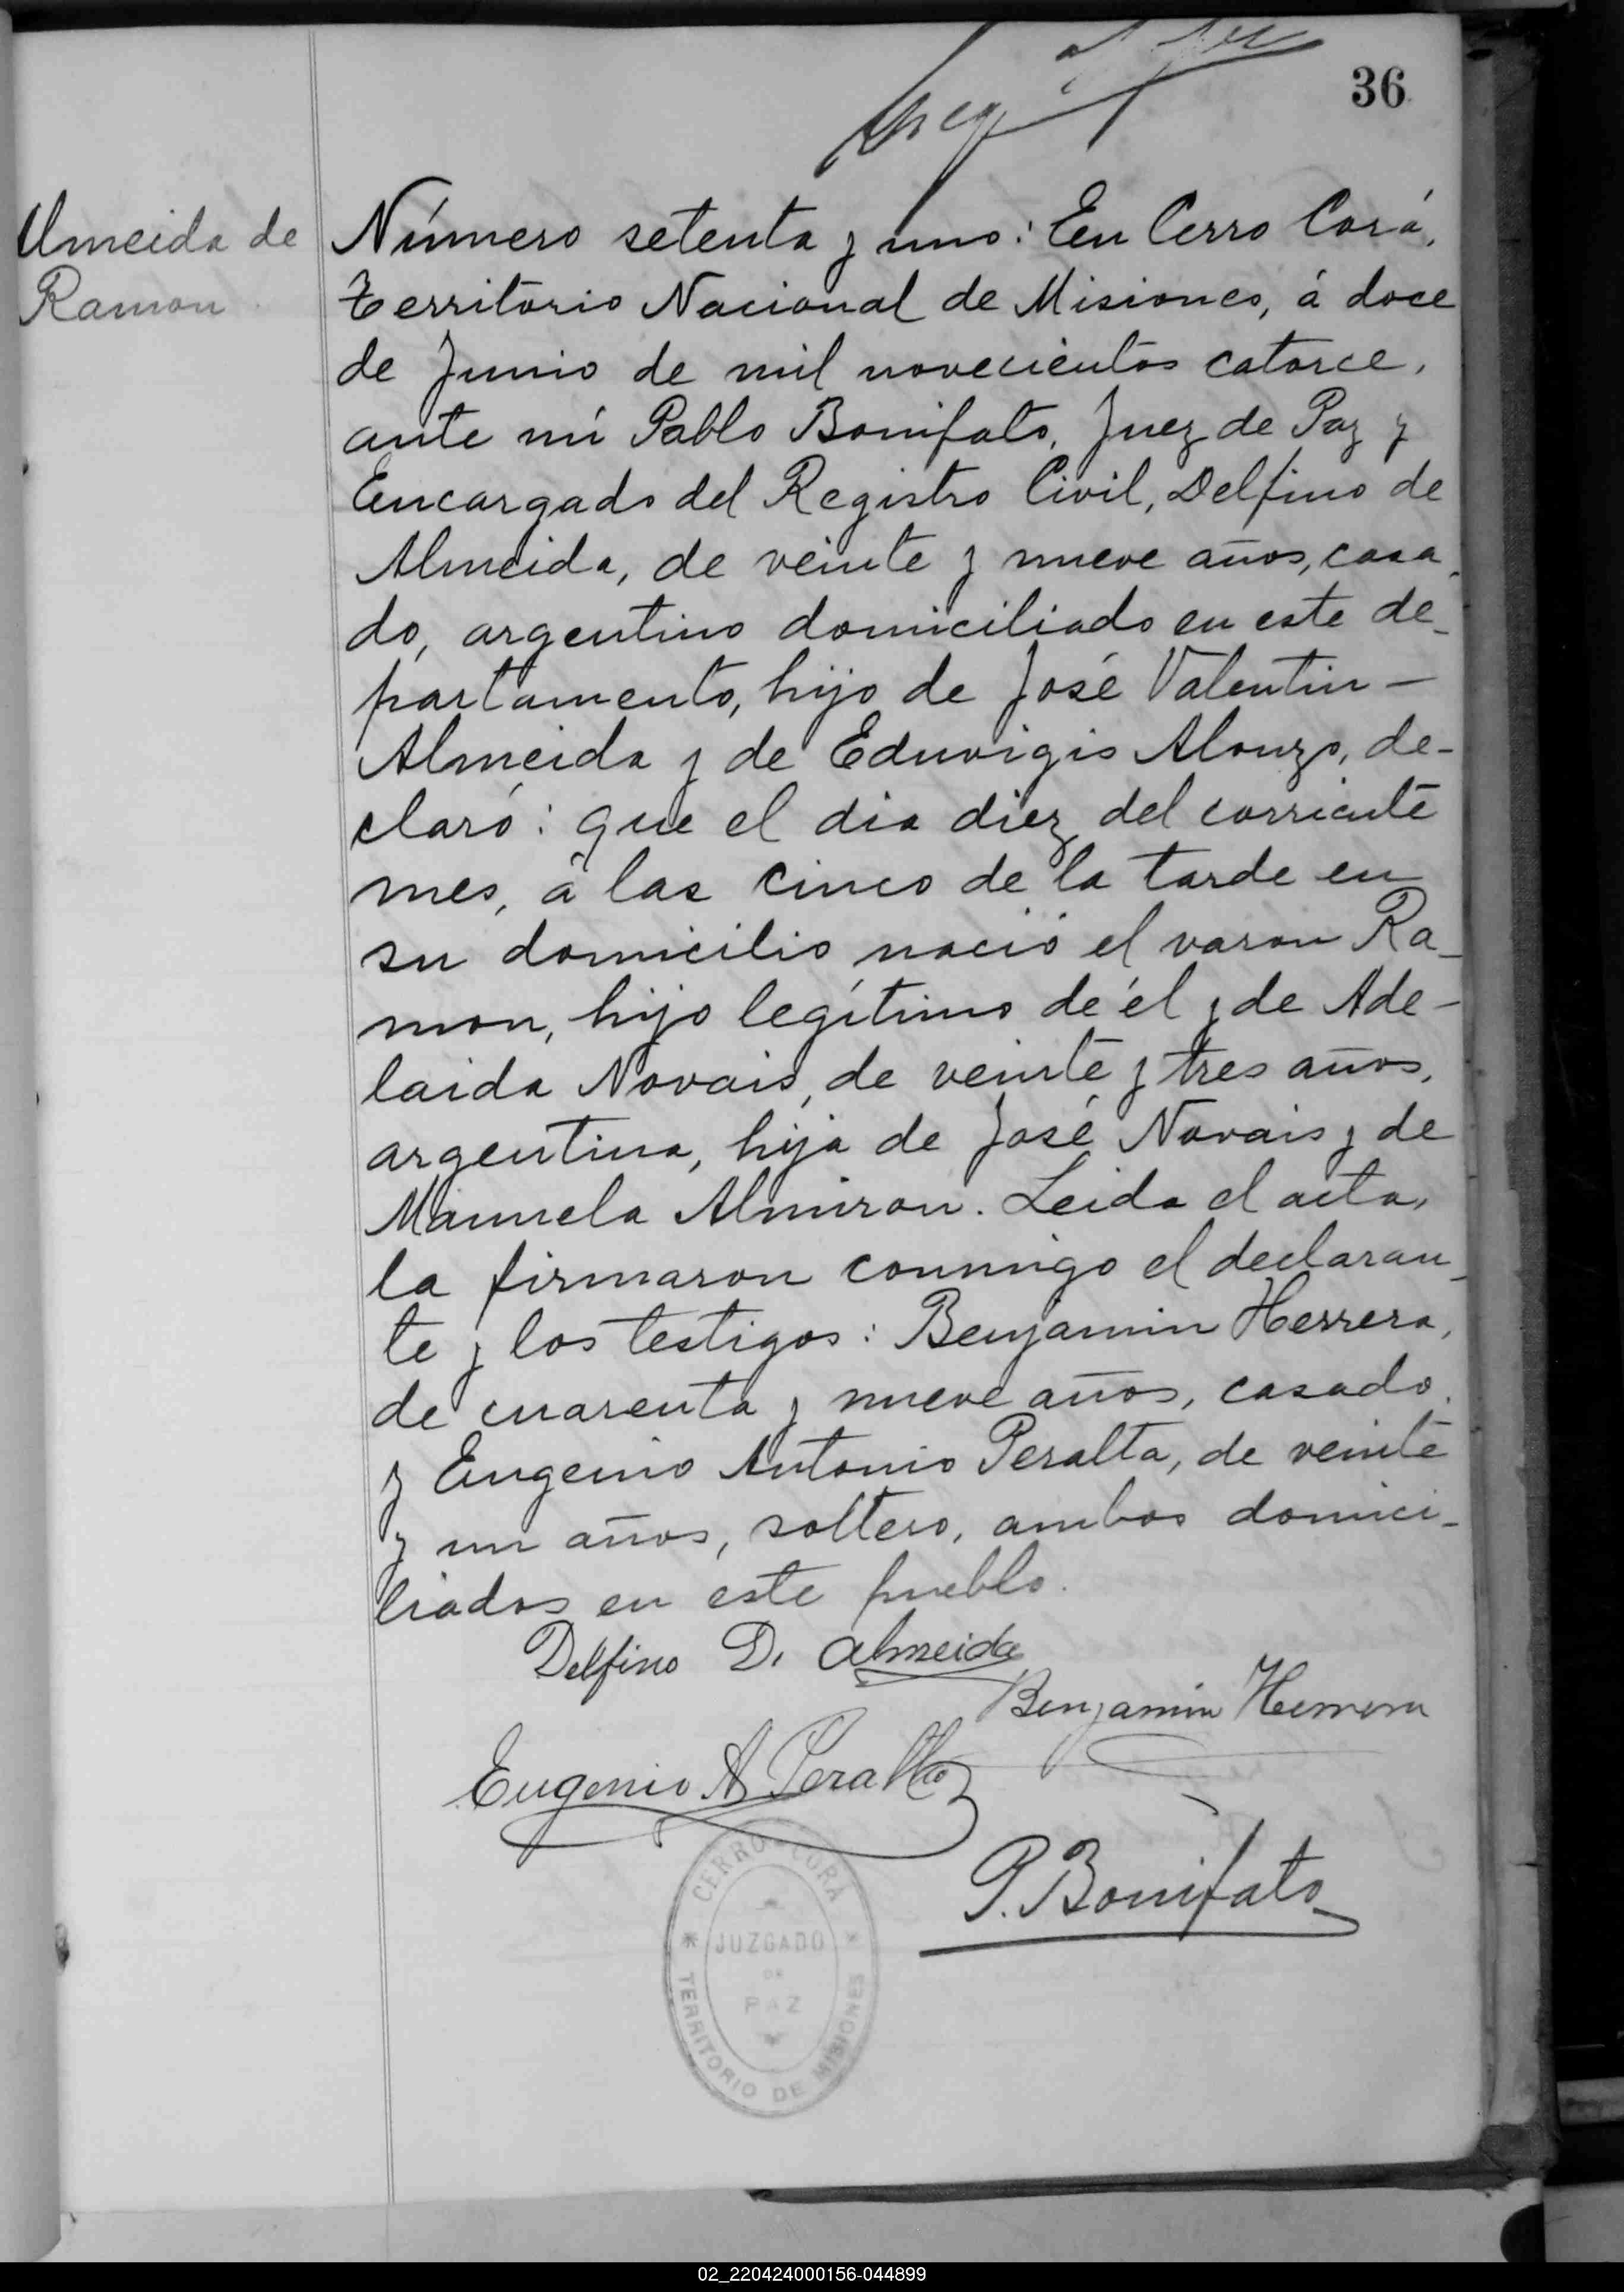 36
Almeida de
Ramon
Número setenta y uno: En Cerro Corá,
Territorio Nacional de Misiones, á doce
de Junio de mil novecientos catorce,
ante mí Pablo Bonifato, Juez de Paz y
Encargado del Registro Civil, Delfino de
Almeida, de veinte y nueve años, casa
do, argentino domiciliado en este de-
partamento, hijo de José Valentin -
Almeida y de Eduvigis Alonzo, de-
claró: que el dia diez del corriente
mes, á las cinco de la tarde en
su domicilio nació el varon Ra-
mon, hijo legítimo de él y de Ade-
laida Novais, de veinte y tres años,
argentina, hija de José Novais y de
Manuela Almiron. Leida el acta,
la firmaron conmigo el declaran-
te y los testigos: Benjamin Herrera,
de cuarenta y nueve años, casado.
y Eugenio Antonio Peralta, de veinte
y un años, soltero, ambos domici-
liados en este pueblo.
Delfino D. Almeida
Benjamin Herrera
Eugenio A Peralta
P. Bonifato
CERRO CORÁ
* JUZGADO *
DE
PAZ
TERRITORIO DE MISIONES
02_220424000156-044899